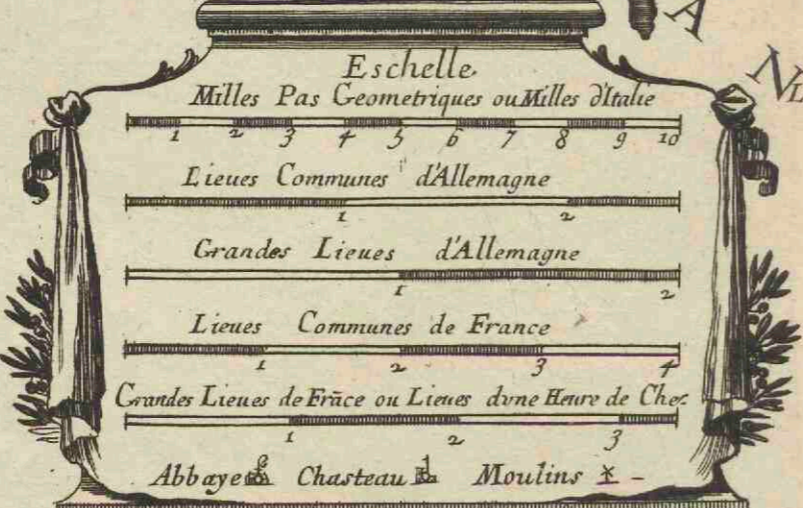 A
N
Eschelle
Milles Pas Geometriques ou Milles d'Italie
1 2 3 4 5 6 7 8 9 10
Lieues Communes d'Allemagne
1 2
Grandes Lieues d'Allemagne
1 2
Lieues Communes de France
1 2 3 4
Grandes Lieues de Frāce ou Lieues dvne Heure de Che.
1 2 3
Abbaye Chasteau Moulins